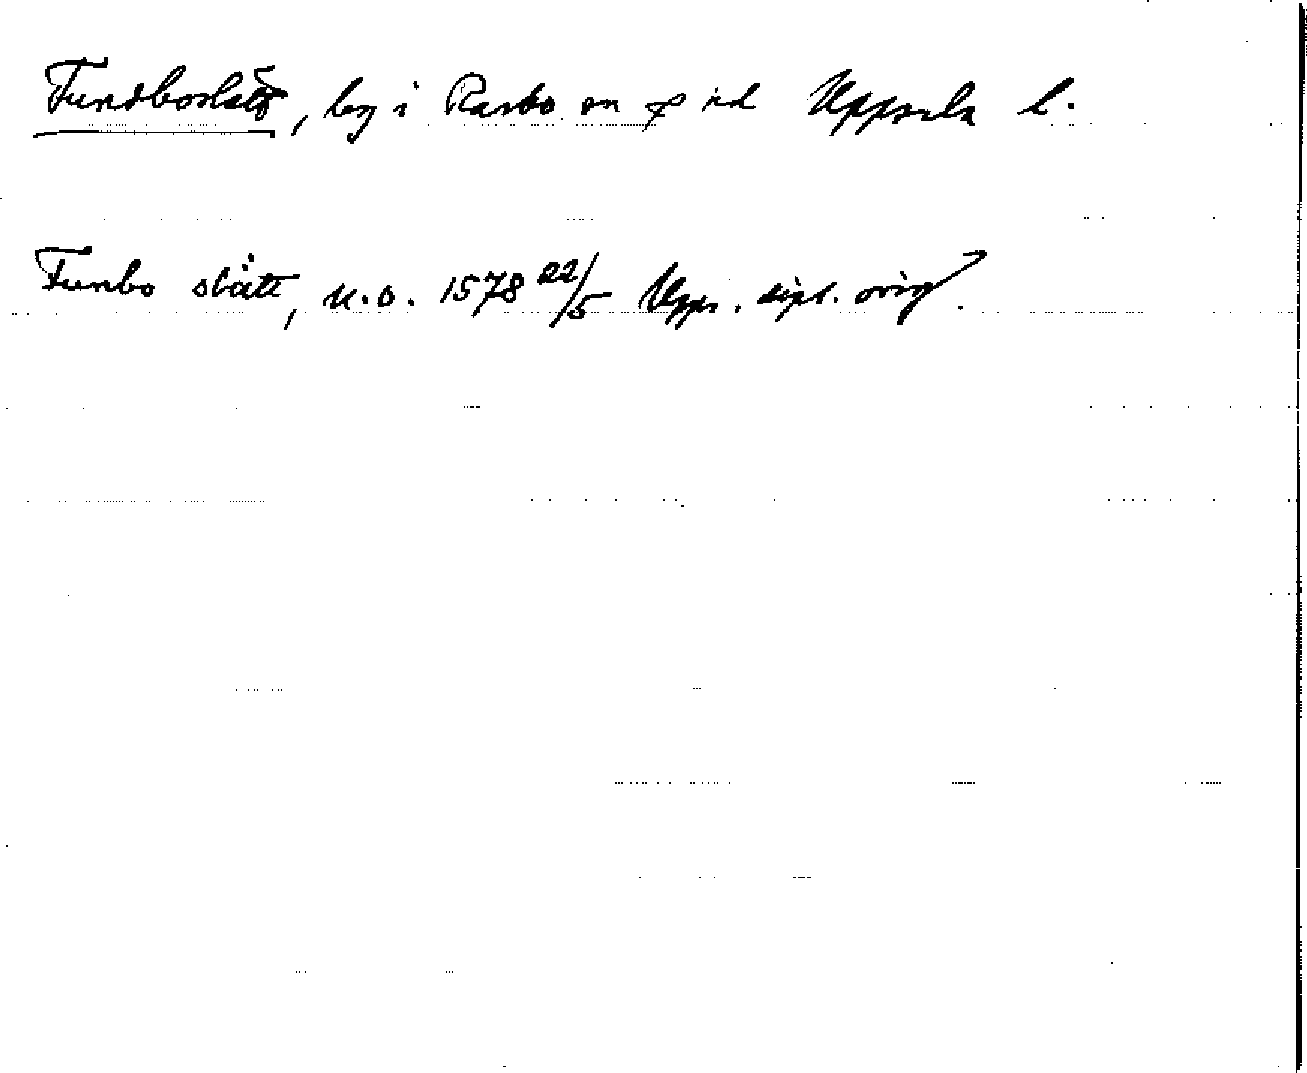 Fundboslätt, by i Rasbo sn o hd Uppsala l.
Funbo slätt, u.o. 1578 22/5 Upps. dipl. orig.